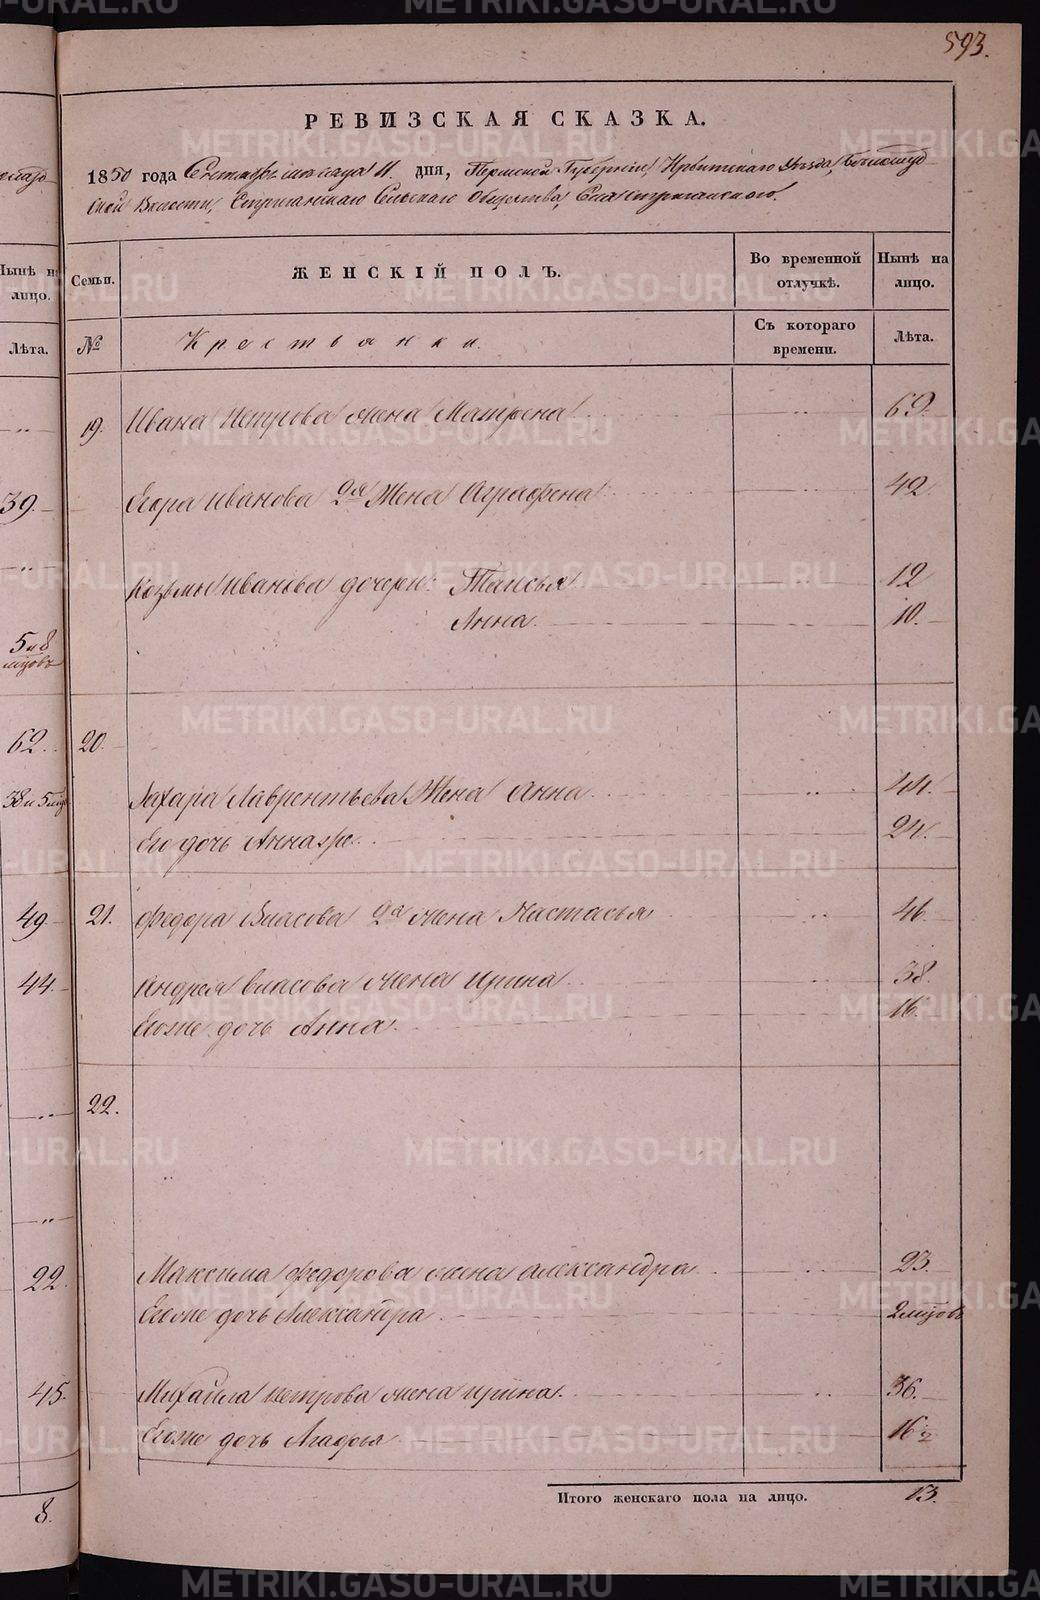 593.
РЕВИЗСКАЯ СКАЗКА.
1850 года Сентября месяца 11 дня, Пермской Губернии, Ирбитского Уезда,
ской Волости, Стриганского Сельского Общества, Села Стриганского.
Нынѣ на лицо.
Семьи.
ЖЕНСКІЙ ПОЛЪ.
Во временной отлучкѣ.
Нынѣ на лицо.
Лѣта.
№
Крестьянки.
Съ котораго времени.
Лѣта.
19. Ивана Петрова жена Матрена 69.
39. Егора Иванова 2я Жена Аграфена 42.
Козьмы Иванова дочери: Таисья 12
Анна. 10.
5 и 8 мцовъ
62. 20.
38 и 5 мцо Захара Лаврентьева Жена Анна 44.
Его дочь Анна же. 24.
49 21. Федора Власова 2я жена Настасья 46.
44. Андрея Власова жена Ирина 38.
Егоже дочь Анна. 16.
22.
22. Максима Федорова жена Александра 23.
Егоже дочь Александра 2 мцовъ
45. Михайла Петрова жена Ирина. 36.
Егоже дочь Агафья 16 ½
Итого женскаго пола на лицо. 13.
8.
METRIKI.GASO-URAL.RU